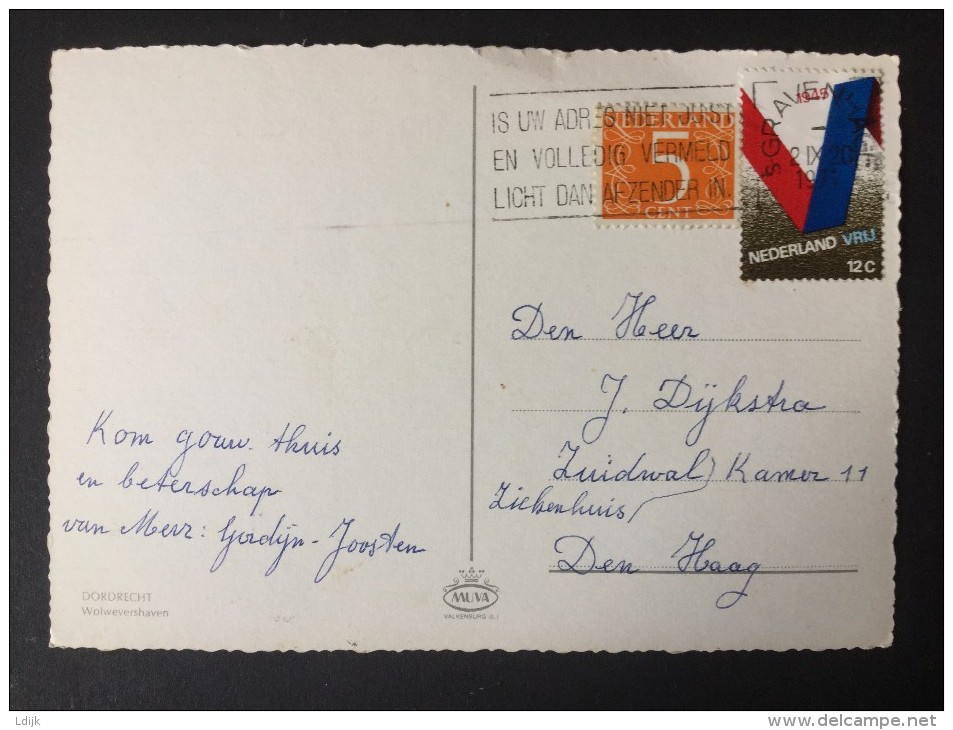 IS UW ADRES NIET JUIST
EN VOLLEDIG VERMELD
LICHT DAN AFZENDER IN.
NEDERLAND
5
CENT
1945
NEDERLAND VRIJ
12 C
'SGRAVEN
2 IX 20
Den Heer
J. Dijkstra
Zuidwal) Kamer 11
Ziekenhuis
Den Haag
Kom gouw thuis
en beterschap
van Mevr: Gordijn-Joosten
DORDRECHT
Wolwevershaven
MUVA
VALKENBURG (L.)
Ldijk
www.delcampe.net